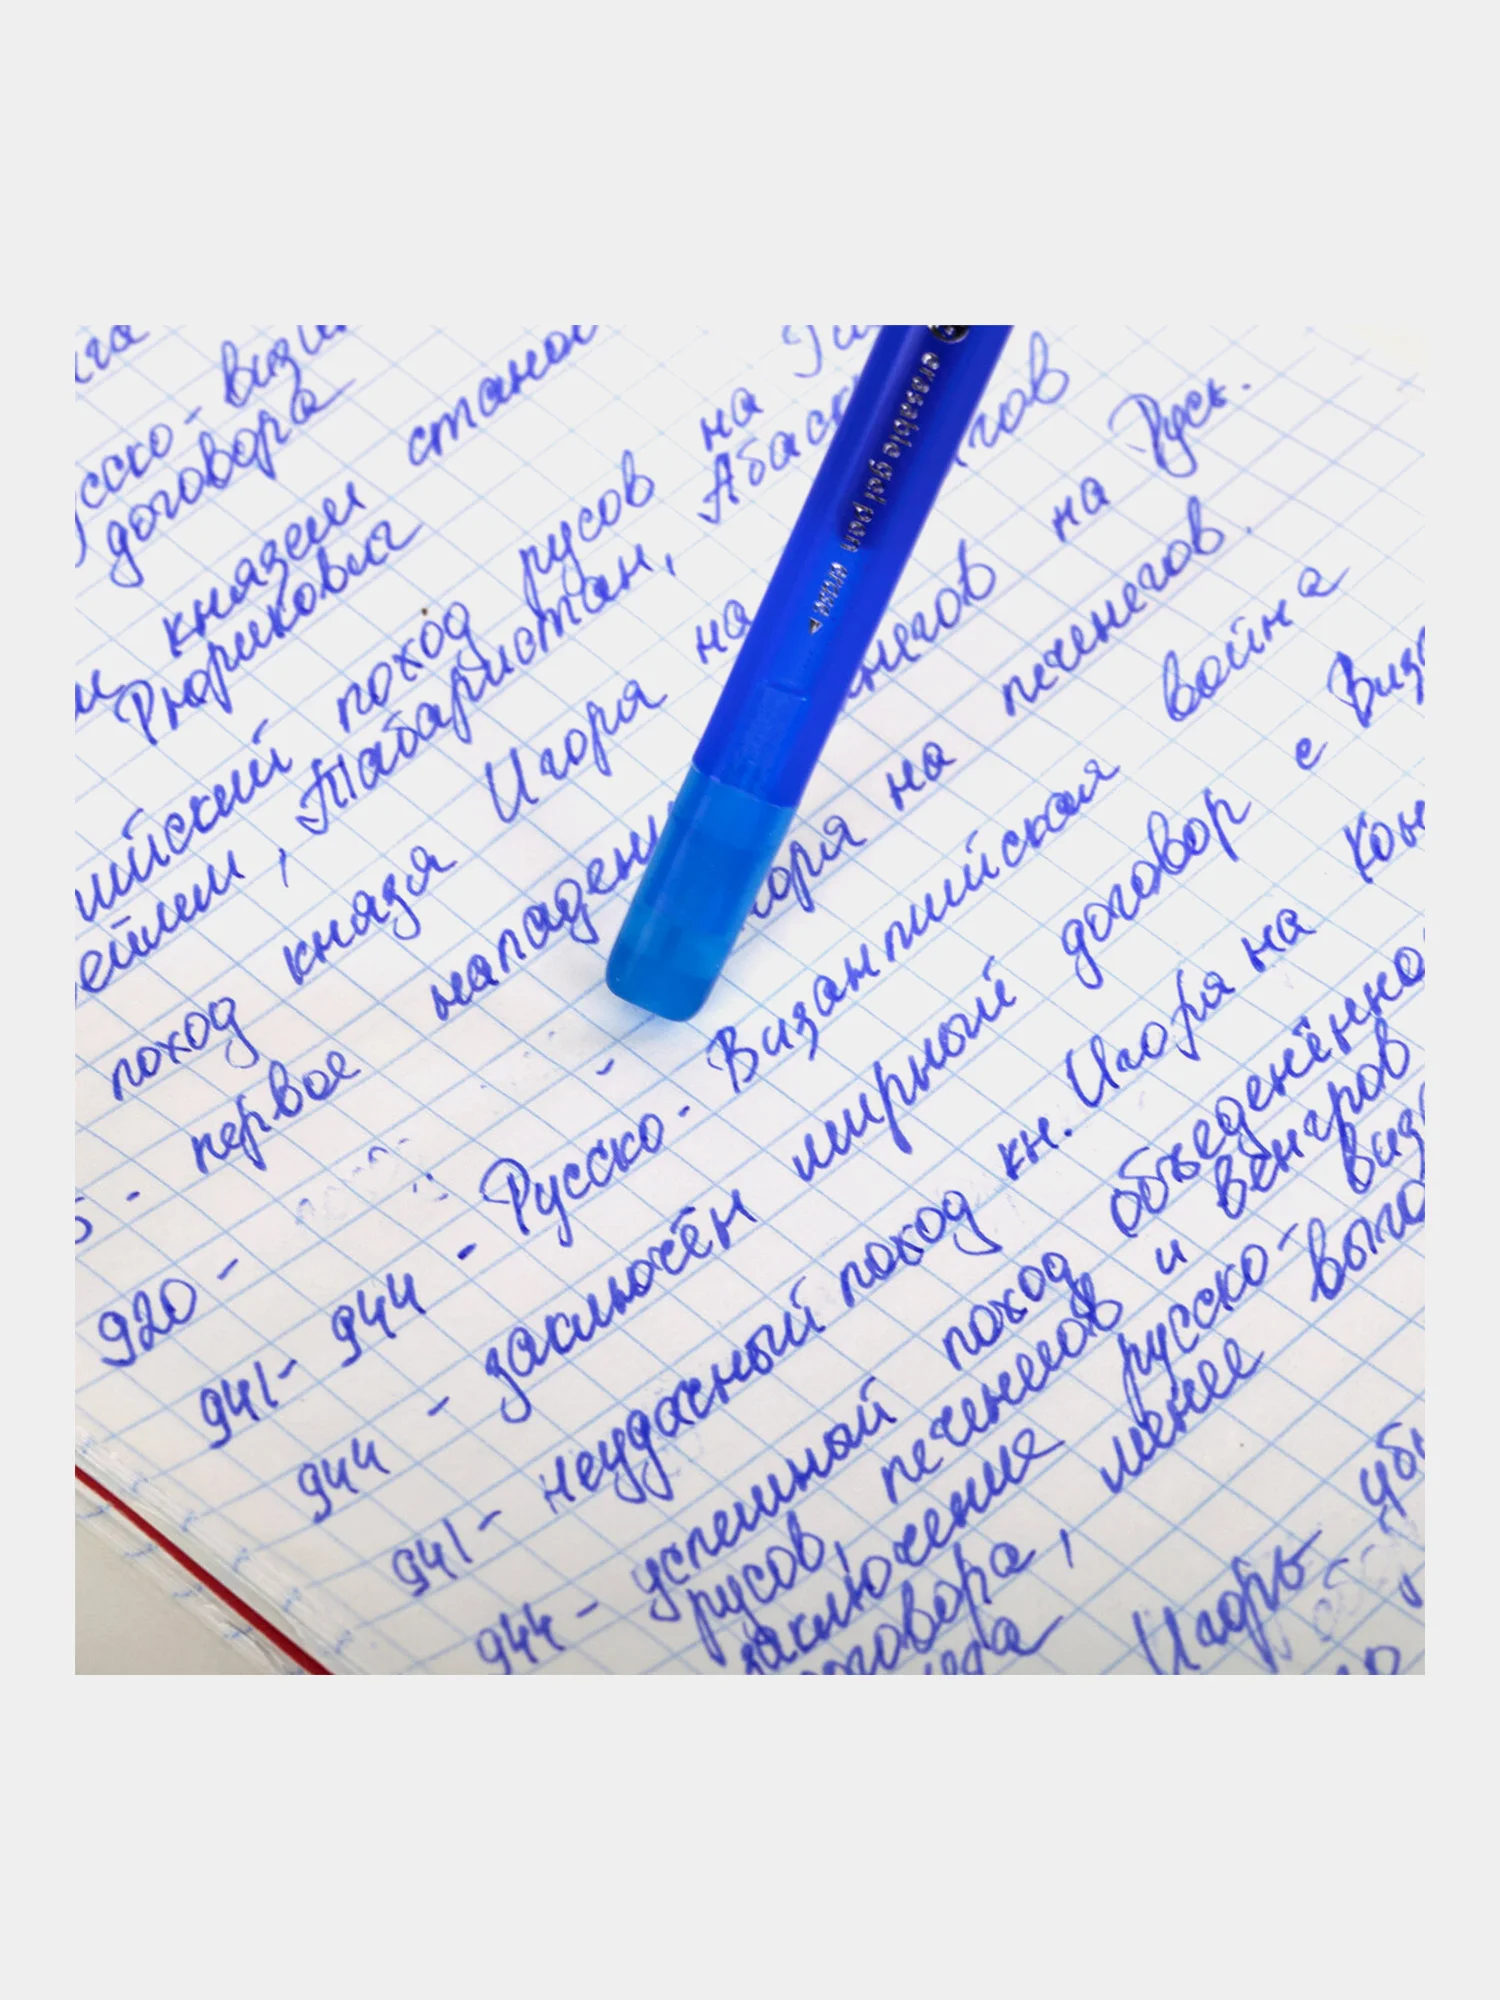 сско- виз
договора
князем станов
Рюриковиа
ийский поход русов на Ги
ейлем, Табаристан, Абаск
поход князя Игоря на негов на Русь.
5 - первое нападени
920 - оря на печенегов.
941- 944 - Русско- Византийская война
944 - заключён мирный договор с Виз
941- неудачный поход кн. Игоря на Кон
944- успешный поход объеденённо
русов, печенегов и венгров
заключение русско- виз
оговора, менее выго
Игорь уби
erasable gel pen